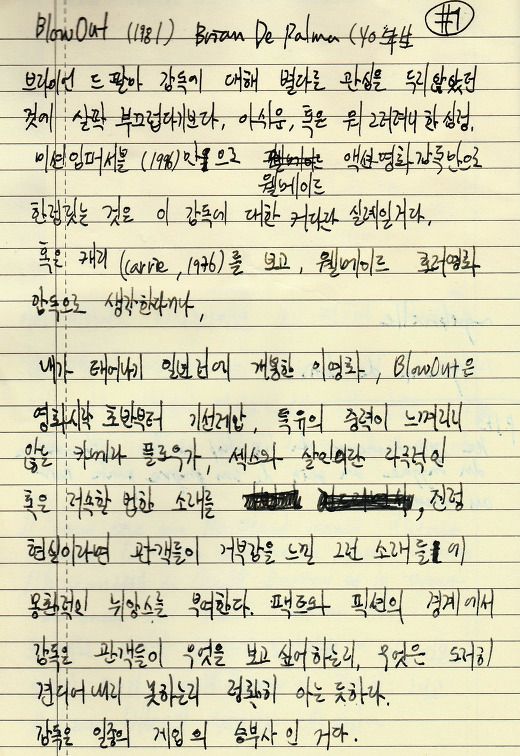 #1
BlowOut (1981) Brian De Palma (40年生
브라이언 드 팔마 감독에 대해 별다른 관심을 두지 않았던
것에 살짝 부끄럽다기보다, 아쉬운, 혹은 뭐 그러려니 한 심정.
미션임파서블 (1996)만으로 액션영화감독만으로
웰메이드
한정짓는 것은 이 감독에 대한 커다란 실례일거다.
혹은 캐리 (carrie, 1976)를 보고, 웰메이드 호러영화
감독으로 생각한다거나,
내가 태어나기 일년전에 개봉한 이영화, BlowOut은
영화시작 초반부터 기선제압, 특유의 중력이 느껴지지
않을 카메라 플로우가, 섹스와 살인이란 자극적인
혹은 저속한 법한 소재를 , 진정
현실이라면 관객들이 거부감을 느낄 그런 소재들에
몽환적인 뉘앙스를 부여한다. 팩트와 픽션의 경계에서
감독은 관객들이 무엇을 보고싶어하는지, 무엇은 도저히
견디어내지 못하는지 정확히 아는 듯하다.
감독은 일종의 게임의 승부사인 거다.